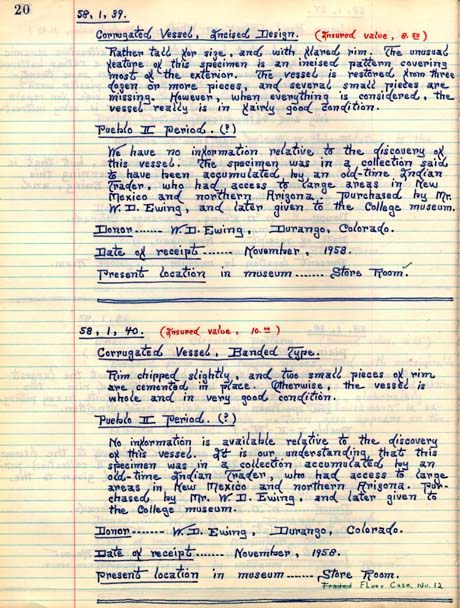 20
58, 1, 39.
Corrugated Vessel, Incised Design. (Insured value, 8.50)
Rather tall for size, and with flared rim. The unusual
feature of this specimen is an incised pattern covering
most of the exterior. The vessel is restored from three
dozen or more pieces, and several small pieces are
missing. However, when everything is considered, the
vessel really is in fairly good condition.
Pueblo II Period. (?)
We have no information relative to the discovery of
this vessel. The specimen was in a collection said
to have been accumulated by an old-time Indian
Trader, who had access to large areas in New
Mexico and northern Arizona. Purchased by Mr.
W. D. Ewing, and later given to the College museum.
Donor ------- W. D. Ewing, Durango, Colorado.
Date of receipt ------- November, 1958.
Present location in museum ------- Store Room. ✓
58, 1, 40. (Insured value, 10.00)
Corrugated Vessel, Banded Type.
Rim chipped slightly, and two small pieces of rim
are cemented in place. Otherwise, the vessel is
whole and in very good condition.
Pueblo II Period. (?)
No information is available relative to the discovery
of this vessel. It is our understanding that this
specimen was in a collection accumulated by an
old-time Indian Trader, who had access to large
areas in New Mexico and northern Arizona. Pur-
chased by Mr. W. D. Ewing, and later given to
the College museum.
Donor ------- W. D. Ewing, Durango, Colorado.
Date of receipt ------- November, 1958.
Present location in museum ------- Store Room.
Floor Case, No. 12